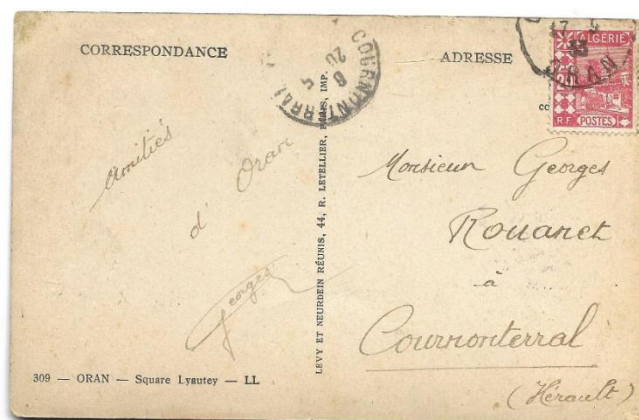 CORRESPONDANCE
ADRESSE
COURNONTERRAL
20
8 5
17 4
33
ORAN
ALGERIE
R.F. POSTES
Amitiés
d' Oran
Georges
Monsieur Georges
Rouanet
à
Cournonterral
(Hérault)
LEVY ET NEURDEIN RÉUNIS, 44, R. LETELLIER, PARIS, IMP.
309 — ORAN — Square Lyautey — LL